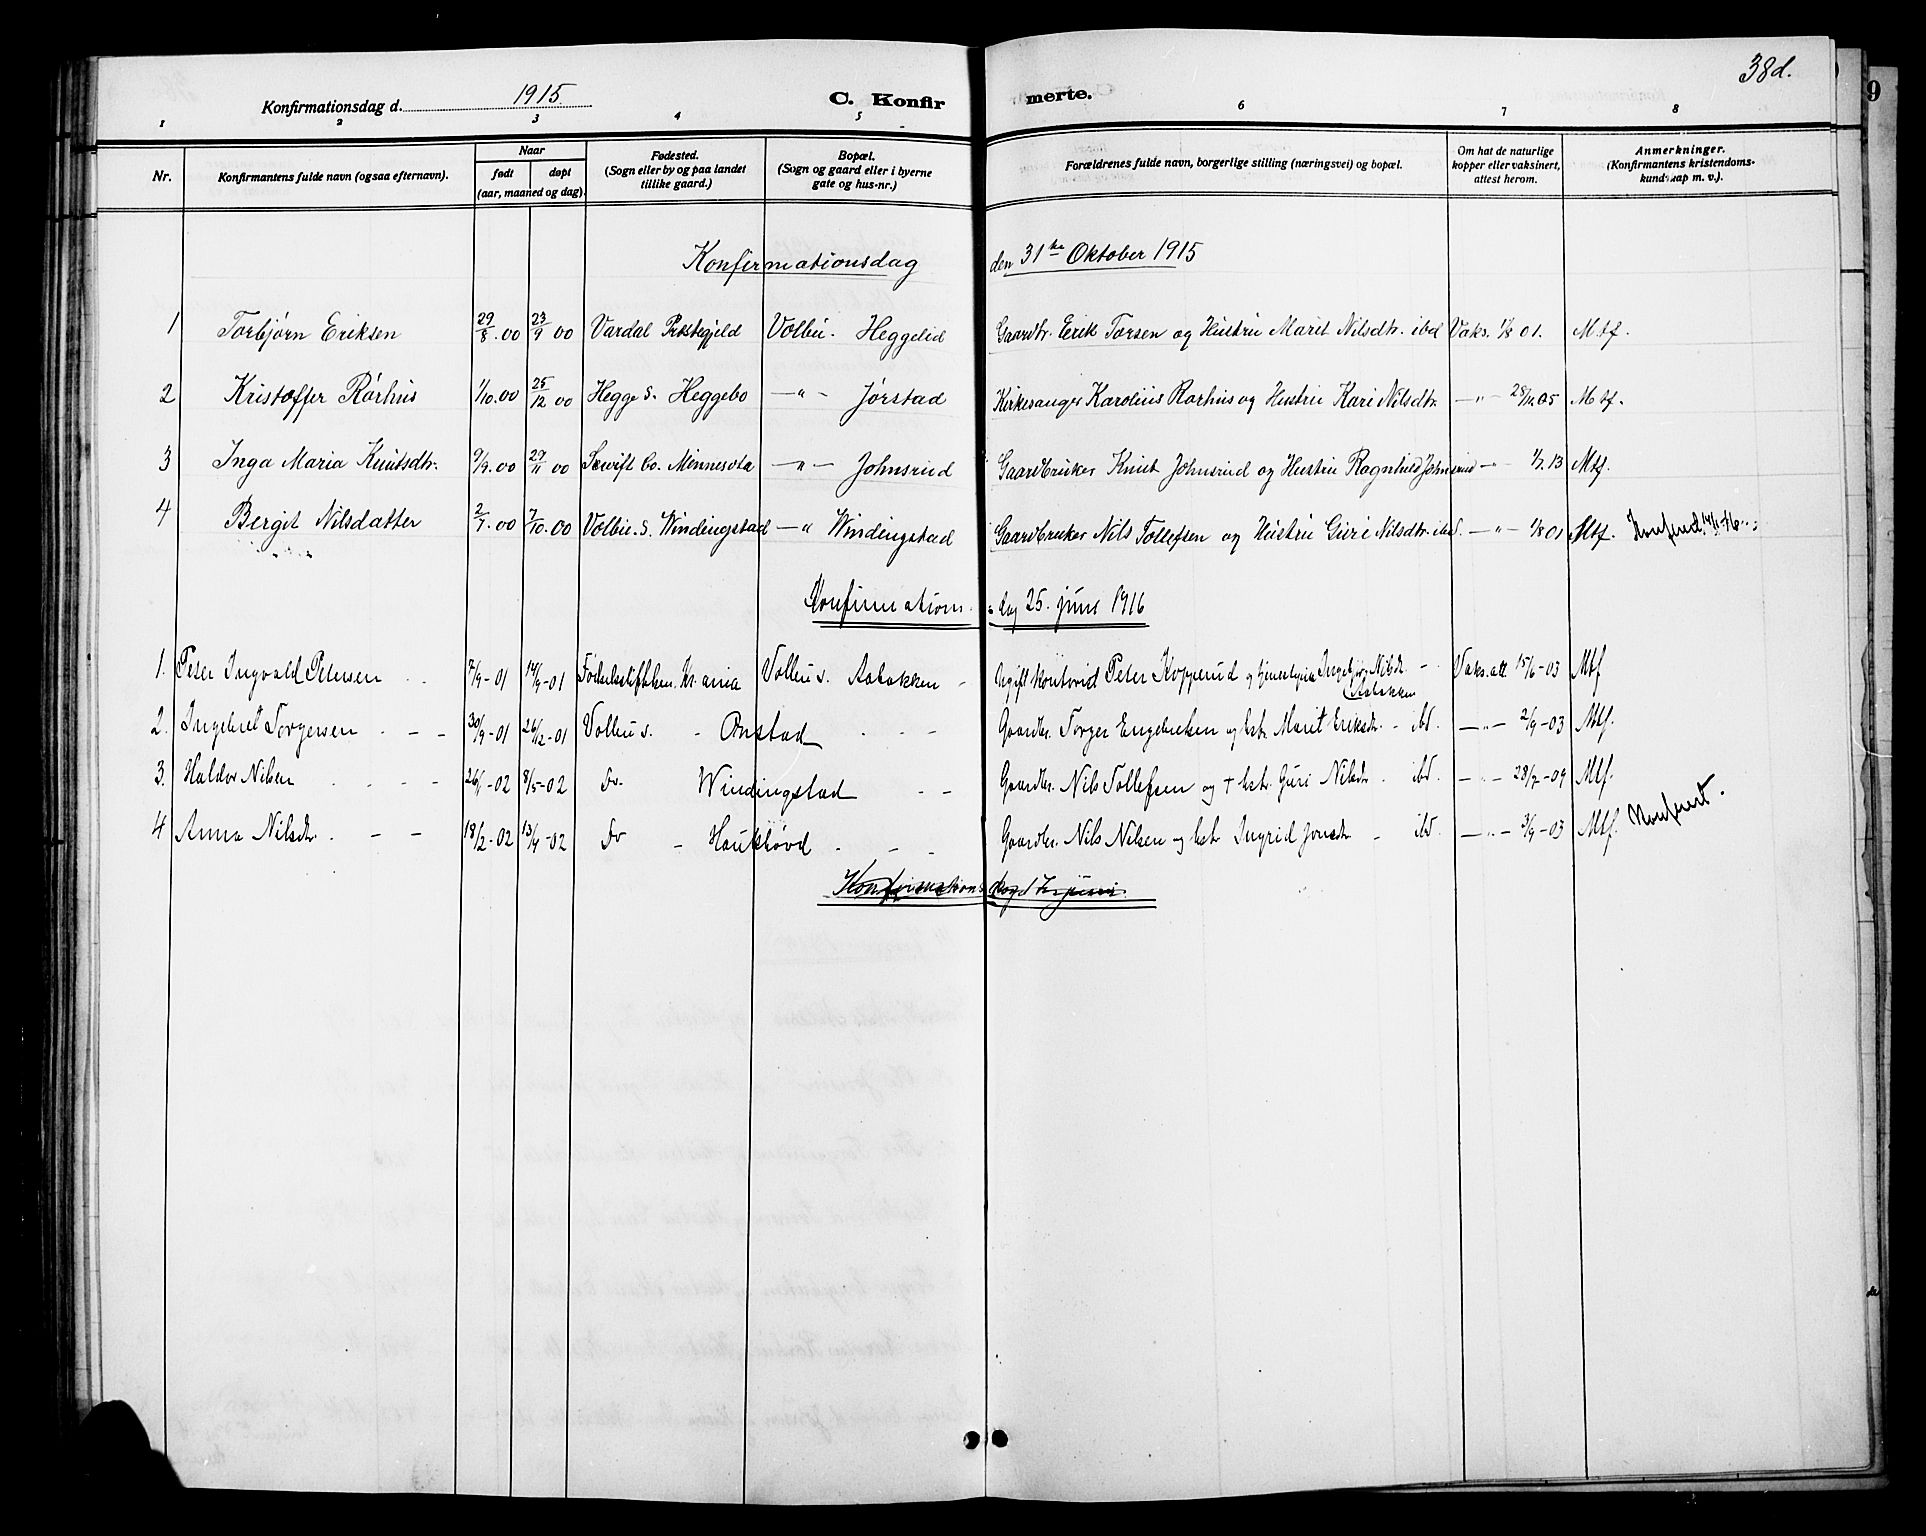 38d.
Konfirmationsdag d. 1915.
C. Konfir merte.
1 2 3 4 5 6 7 8
Nr.
Konfirmantens fulde navn (ogsaa efternavn).
Naar
født døpt
(aar, maaned og dag).
Fødested.
(Sogn eller by og paa landet
tillike gaard.)
Bopæl.
(Sogn og gaard eller i byerne
gate og hus-nr.)
Forældrenes fulde navn, borgerlige stilling (næringsvei) og bopæl.
Om hat de naturlige
kopper eller vaksinert,
attest herom.
Anmerkninger.
(Konfirmantens kristendoms-
kundskap m. v.).
Konfirmationsdag den 31te Oktober 1915
1 Torbjørn Eriksen 29/8.00 23/9 00 Vardal Præstegjeld Volbu. Heggelid Gaardbr. Erik Torsen og Hustru Marit Nilsdtr. ibd Vaks. 1/8 01. Mtf.
2 Kristoffer Rørhus 1/10.00 25/12 00 Hegge s. Heggebo —"— Jørstad Kirkesanger Karolius Rørhus og Hustru Kari Nilsdtr. —"— 28/11.05 Mtf.
3 Inga Maria Knutsdtr. 9/9.00 29/11 00 Swift Co. Minnesota —"— Johnsrud Gaardbruker Knut Johnsrud og Hustru Ragnhild Johnsrud —"— 1/7 13 Mtf.
4 Bergit Nilsdatter 2/7.00 7/10.00 Volbu. s. Windingstad —" Windingstad Gaardbruker Nils Tollefsen og Hustru Guri Nilsdtr. ibd. —"— 1/8 01 Mtf.
Konfirmations- dag 25. juni 1916
1. Peter Ingvald Petersen 7/9-01 14/9-01 Fødselsstiftelsen Kr.ania Volbu s. Aabakken Ugift Peter Kopperud og Ingebjørg Nilsdr Aabakken Vaks.att. 15/6-03 Mtf
2. Ingebret Torgersen 30/9-01 26/12-01 Volbu s. - Onstad Gaardbr. Torger Engebretsen og hstr. Marit Eriksdr. - ibd. —"— 2/9-03 Mtf.
3. Haldor Nilsen 26/1-02 8/5-02 Do Windingstad Gaardbr. Nils Tollefsen og + hstr. Guri Nilsdr. ibd. —"— 28/7-09 Mtf.
4 Anna Nilsdr. 18/2-02 13/4-02 Do - Haukhøvd Gaardbr. Nils Nilsen og hstr Ingrid Jonsdr - ibd. —"— 3/9-03 Mtf.
Konfirmations